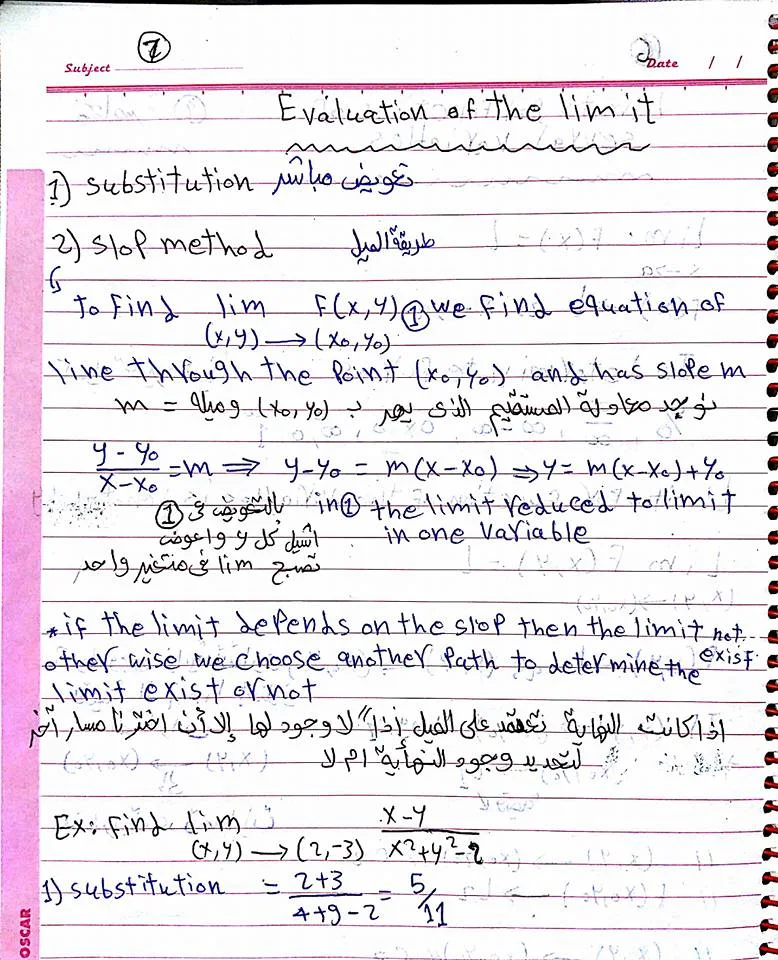 7
2
Subject
Date / /
Evaluation of the limit
1) substitution تعويض مباشر
2) slop method طريقة الميل
To Find lim F(x,y) ① we find equation of
(x,y) → (x₀,y₀)
line through the point (x₀,y₀) and has slope m
نوجد معادلة المستقيم الذى يمر ب (x₀,y₀) وميله = m
y-y₀/x-x₀ = m ⇒ y-y₀ = m(x-x₀) ⇒ y = m(x-x₀)+y₀
بالتعويض فى ① in ① the limit reduced to limit
اشيل كل y واعوض in one variable
تصبح lim فى متغير واحد
* if the limit depends on the slop then the limit not exist
other wise we choose another path to determine the
limit exist or not
اذا كانت النهاية تعتمد على الميل إذاً لا وجود لها إلا أن اخترنا مسار آخر
لتحديد وجود النهاية ام لا
Ex: find lim x-y/x²+y²-2
(x,y) → (2,-3)
1) substitution = 2+3/4+9-2 = 5/11
OSCAR